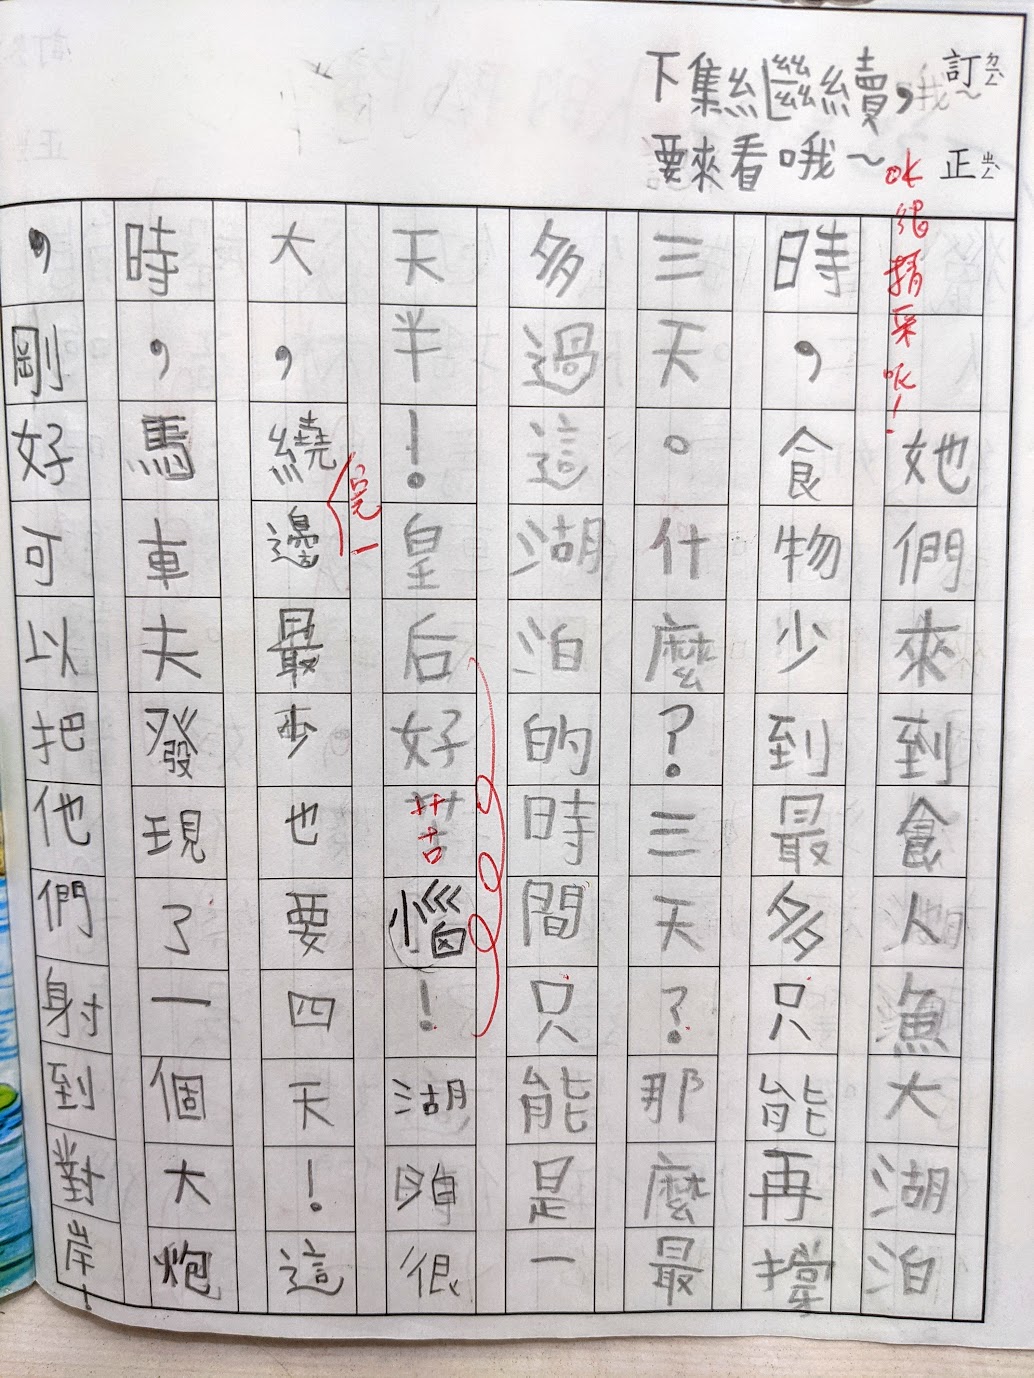 訂
正
下集繼續，
要來看哦～
精采呢！
她們來到食人漁大湖泊
時，食物少到最多只能再撐
三天。什麼？三天？那麼最
多過這湖泊的時間只能是一
天半！皇后好苦惱！湖很
大，繞邊最少也要四天！這
完一
時，馬車夫發現了一個大炮
，剛好可以把他們射到對岸！